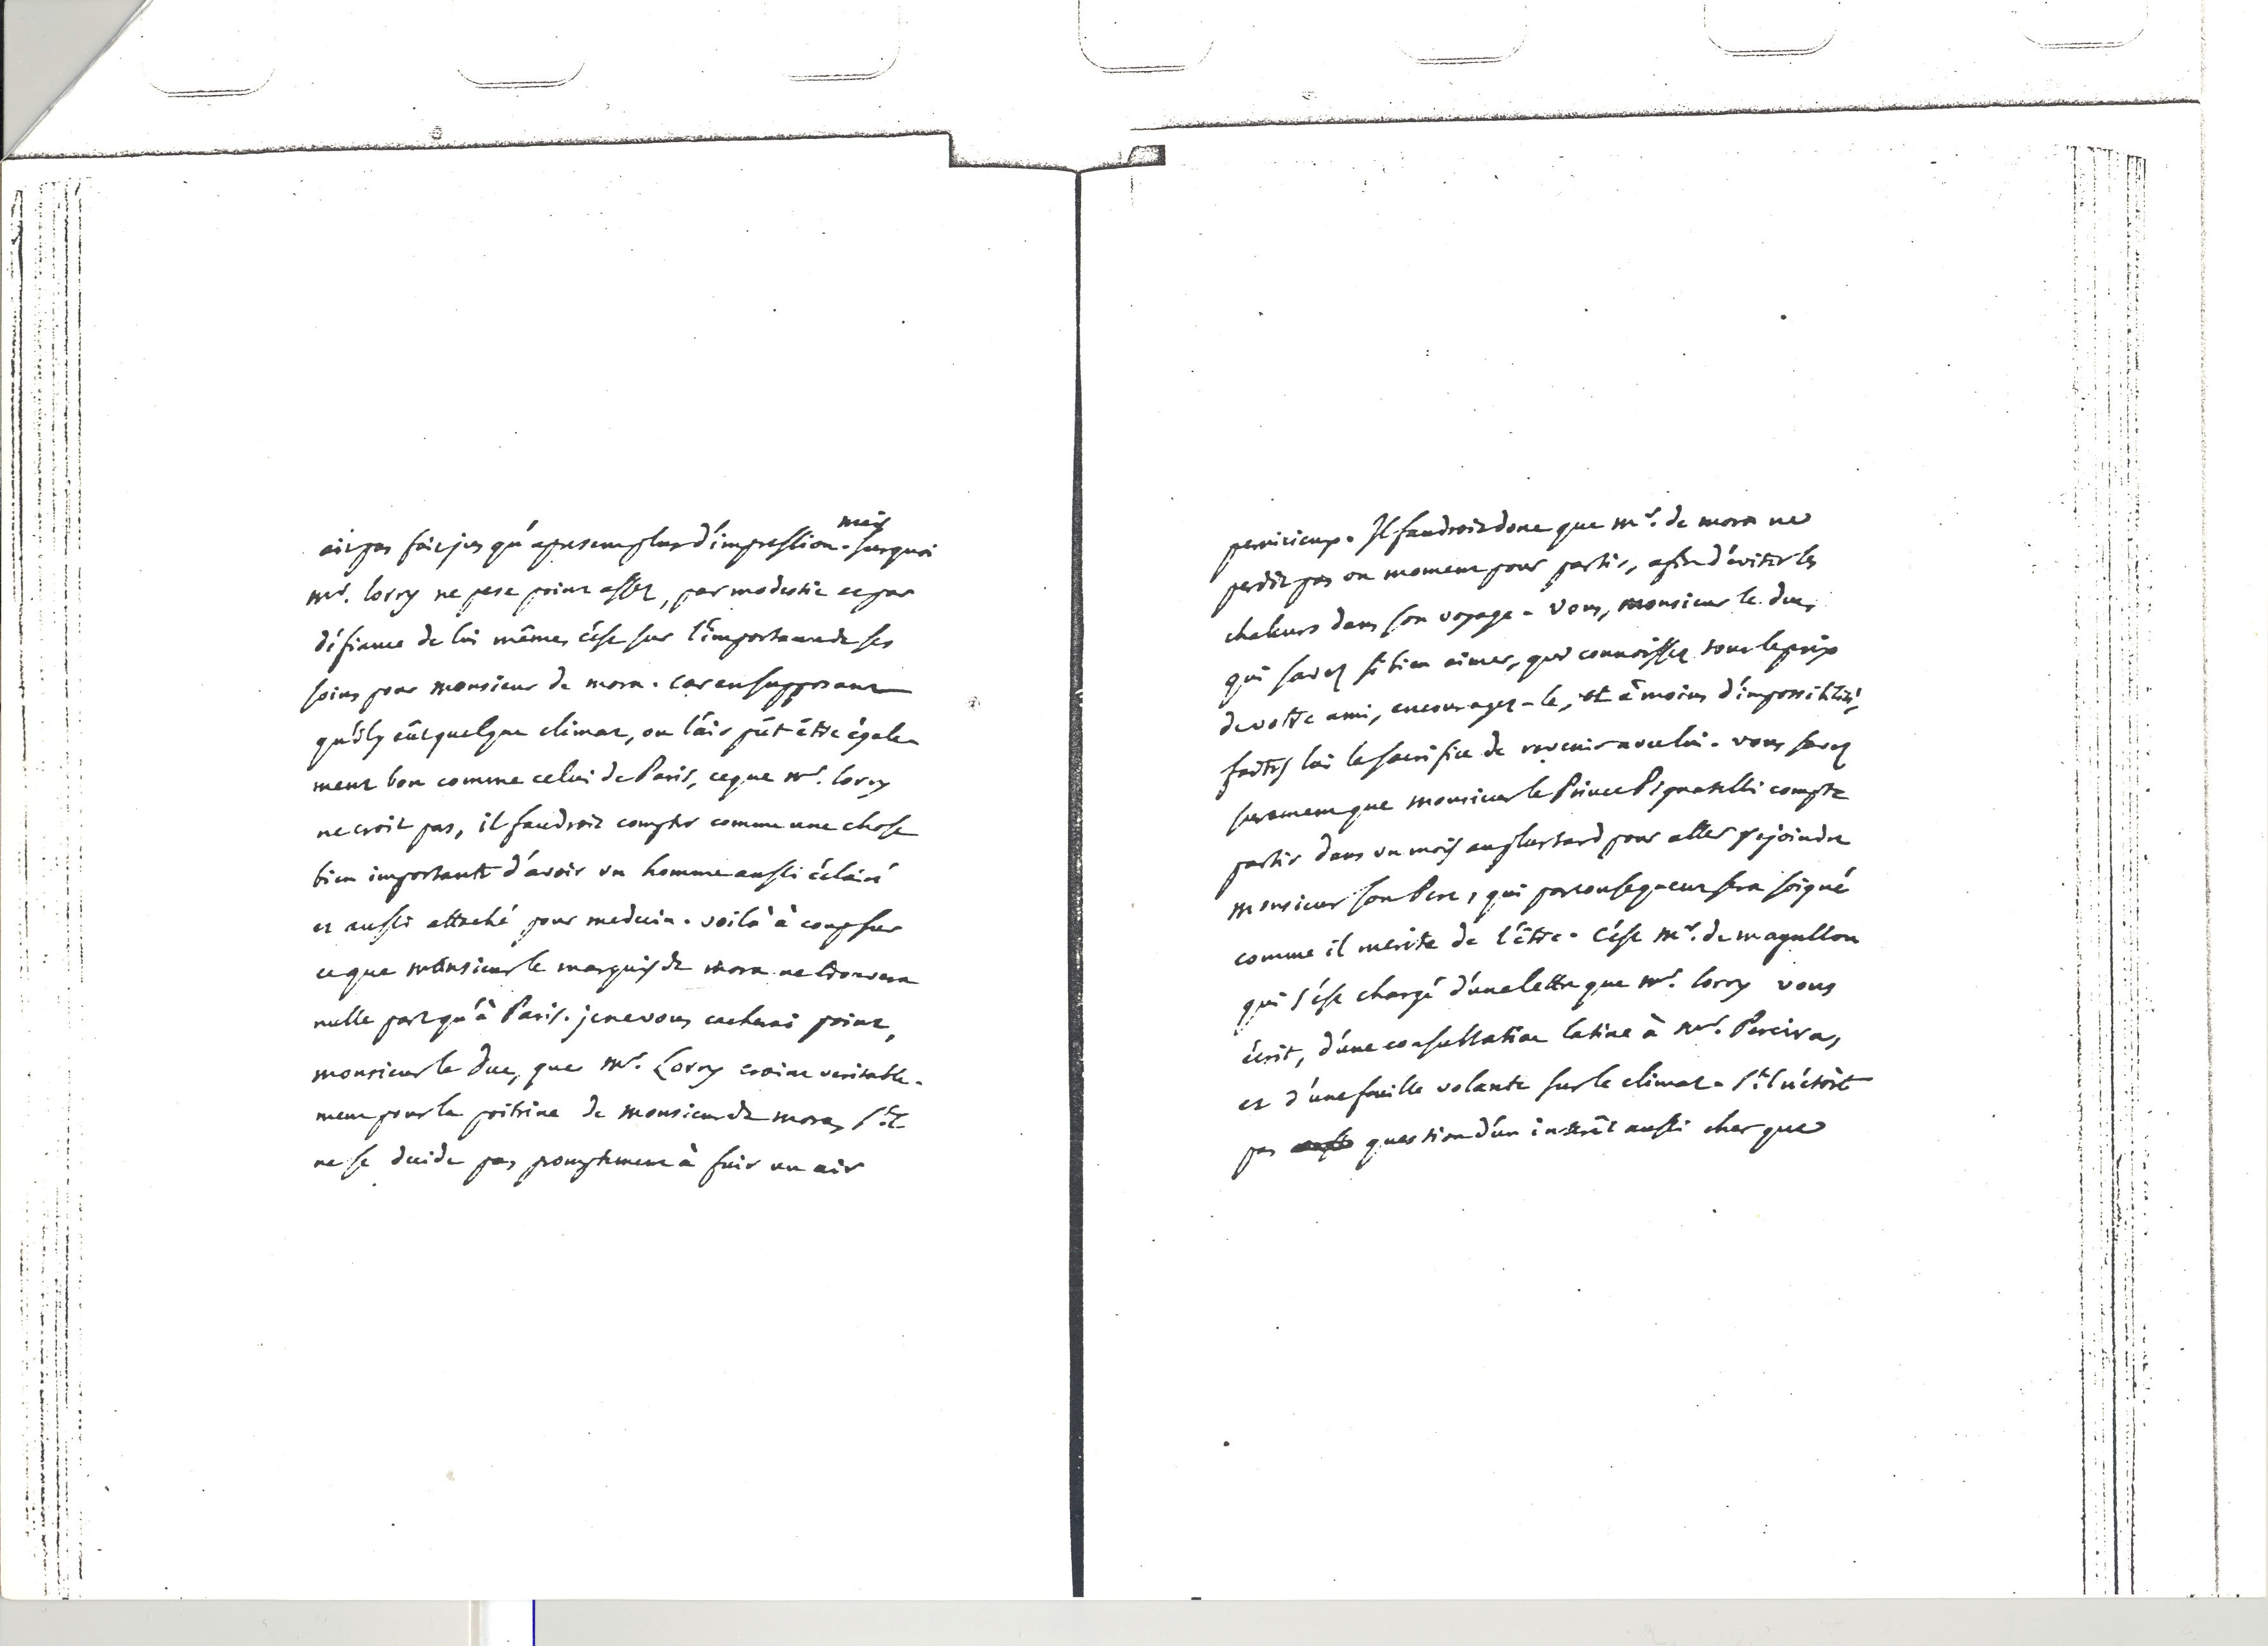 ait pas fait jusqu'a present plus d'impression. mais sur quoi
mr. lorry ne pese point assez, par modestie et par
défiance de lui même, c'est sur l'importance de ses
soins pour monsieur de mora. car en supposant
qu'il y eût quelque climat, ou l'air pût être égale-
ment bon comme celui de Paris, ce que mr. lorry
ne croit pas, il faudroit compter comme une chose
bien importante d'avoir un homme aussi éclairé
et aussi attaché pour medecin. voilà à coup sur
ce que monsieur le marquis de mora ne trouvera
nulle part qu'à Paris. je ne vous cacherai point,
monsieur le Duc, que mr. Lorry craint veritable-
ment pour la poitrine de monsieur de mora, s'il
ne se decide pas promptement à fuir un air
pernicieux. Il faudroit donc que mr. de mora ne
perdit pas un moment pour partir, afin d'éviter les
chaleurs dans son voyage. vous, monsieur le duc,
qui savez si bien aimer, qui connoissez tout le prix
de votre ami, encouragez-le, et à moins d'impossibilité,
faites lui le sacrifice de revenir avec lui. vous savez
surement que monsieur le Prince Pignatelli compte
partir dans un mois au plus tard pour aller rejoindre
monsieur son Pere, qui par consequent sera soigné
comme il merite de l'être. c'est mr. de magallon
qui s'est chargé d'une lettre que mr. lorry vous
écrit, d'une consultation latine à mr. Pereira,
et d'une feuille volante sur le climat. s'il n'étoit
pas question d'un interêt aussi cher que